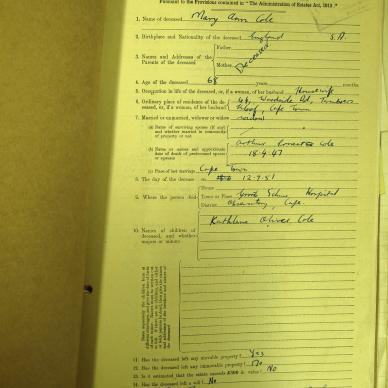 Pursuant to the Provisions contained in "The Administration of Estates Act, 1913."
1. Name of deceased Mary Ann Cole
2. Birthplace and Nationality of the deceased England S.A.
3. Names and Addresses of the Parents of the deceased
Father
Mother
Deceased
4. Age of the deceased 68 years months
5. Occupation in life of the deceased, or, if a woman, of her husband Housewife
6. Ordinary place of residence of the deceased, or, if a woman, of her husband 46, Woodside Rd, Tamboers Kloof, Cape Town
7. Married or unmarried, widower or widow widow
(a) Name of surviving spouse (if any) and whether married in community of property or not
(b) Name or names and approximate date of death of predeceased spouse or spouses Arthur Cole
18.4.47
(c) Place of last marriage Cape Town
8. The day of the decease on 12.9.51
9. Where the person died
House
Town or Place Groote Schuur Hospital
District Observatory, Cape.
10. Names of children of deceased, and whether majors or minors
Kathleen Olives Cole
11. Has the deceased left any movable property? Yes
12. Has the deceased left any immovable property? No
13. Is it estimated that the estate exceeds £300 in value? No
14. Has the deceased left a will? No